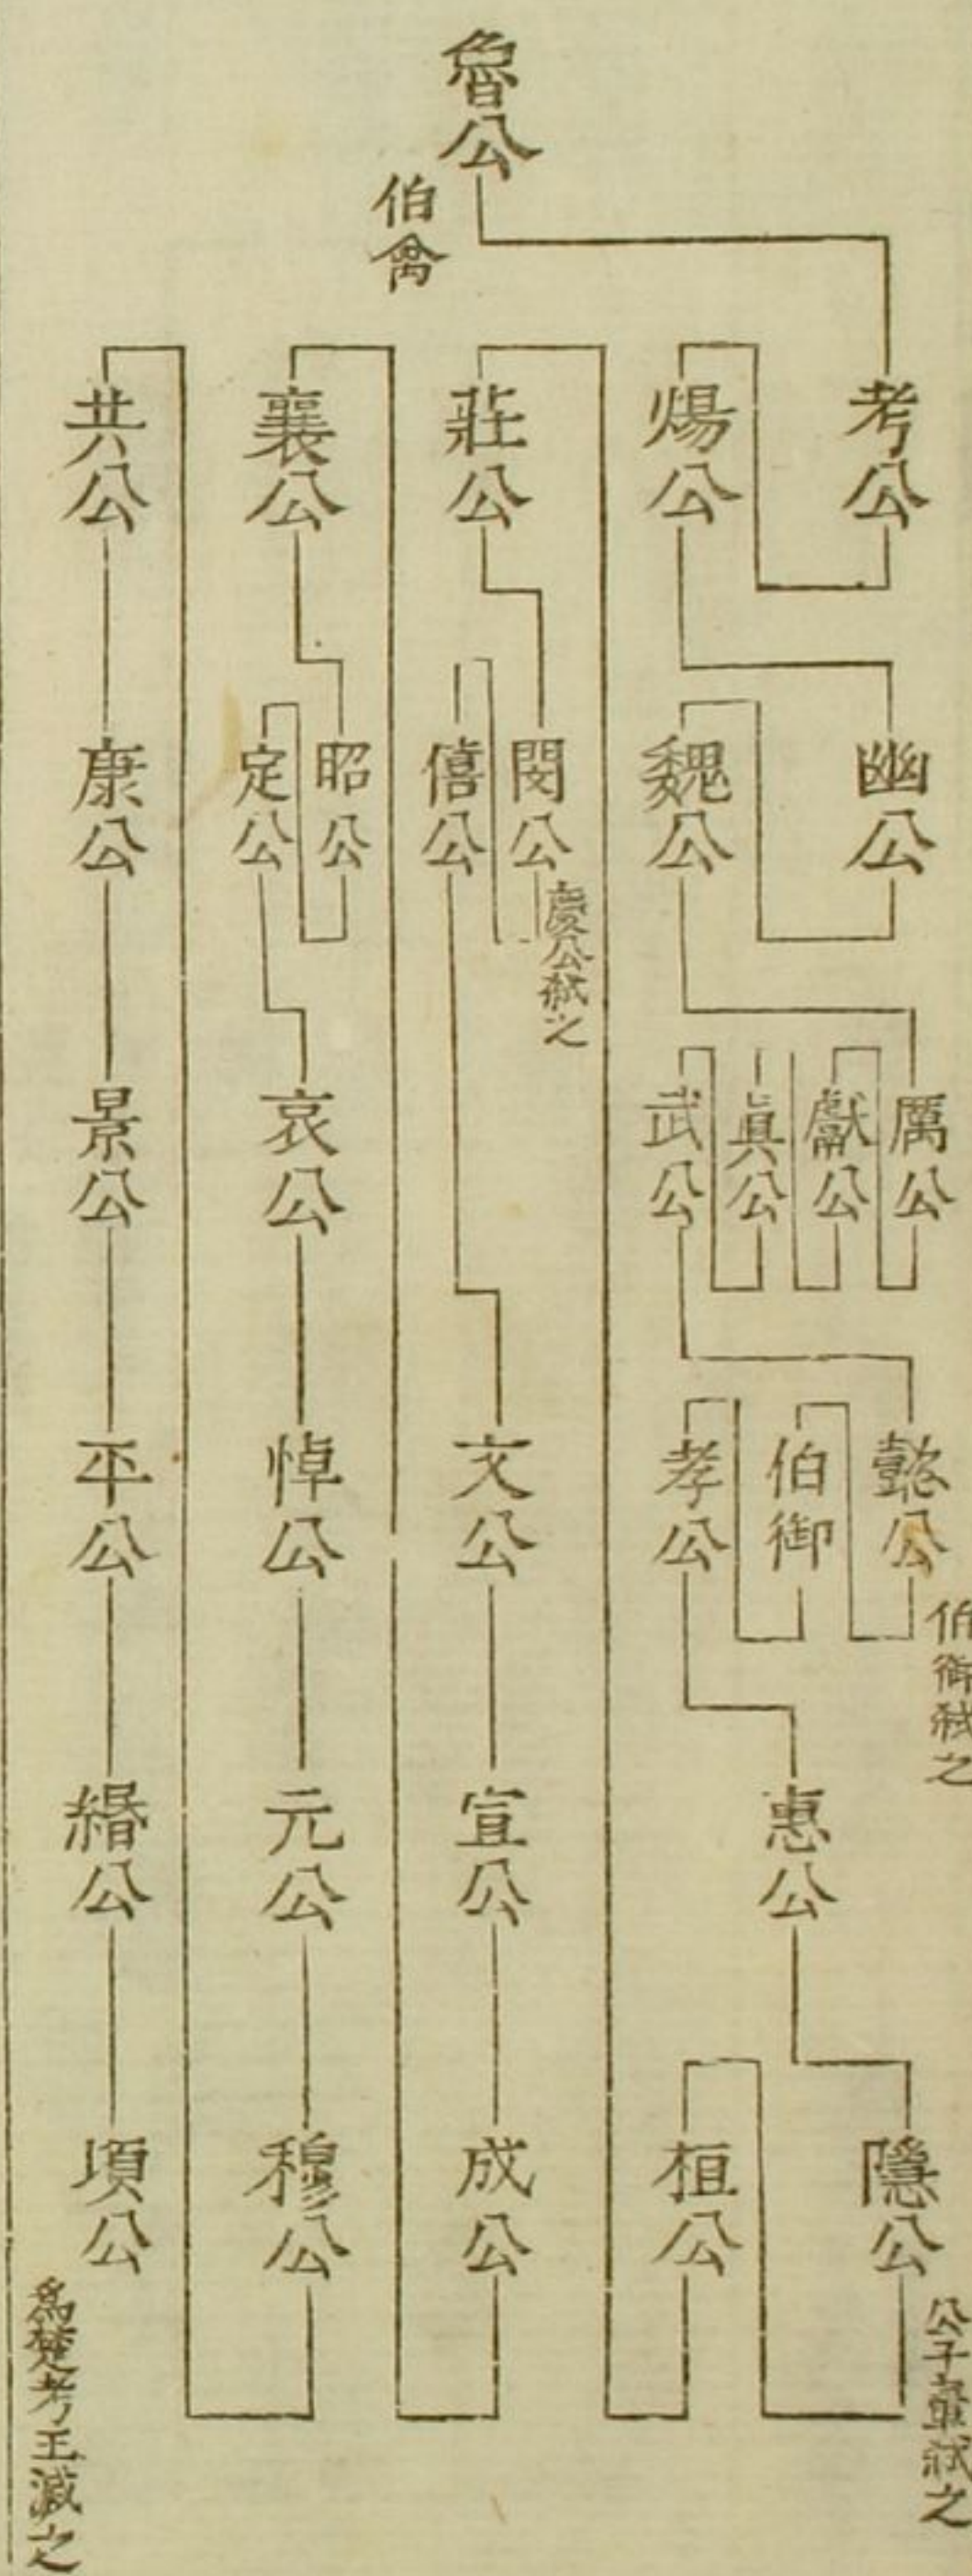 魯公
伯禽
考公
煬公
幽公
魏公
厲公
獻公
眞公
武公
懿公
伯御弑之
伯御
孝公
惠公
隱公
公子翬弑之
桓公
莊公
閔公
慶公弑之
僖公
文公
宣公
成公
襄公
昭公
定公
哀公
悼公
元公
穆公
共公
康公
景公
平公
緡公
頃公
為楚考王滅之